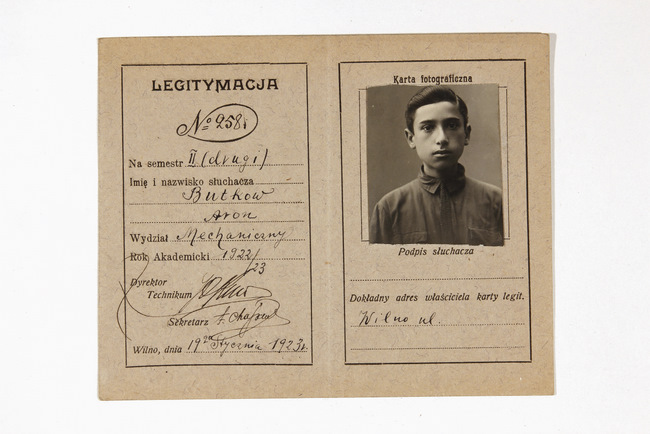 LEGITYMACJA
№ 258.
Na semestr II (drugi)
Imię i nazwisko słuchacza
Butkow
Aron
Wydział Mechaniczny
Rok Akademicki 1922/
23
Dyrektor
Technikum
Sekretarz
Wilno, dnia 19 Stycznia 1923 r.
Karta fotograficzna
Podpis słuchacza
Dokładny adres właściciela karty legit.
Wilno ul.